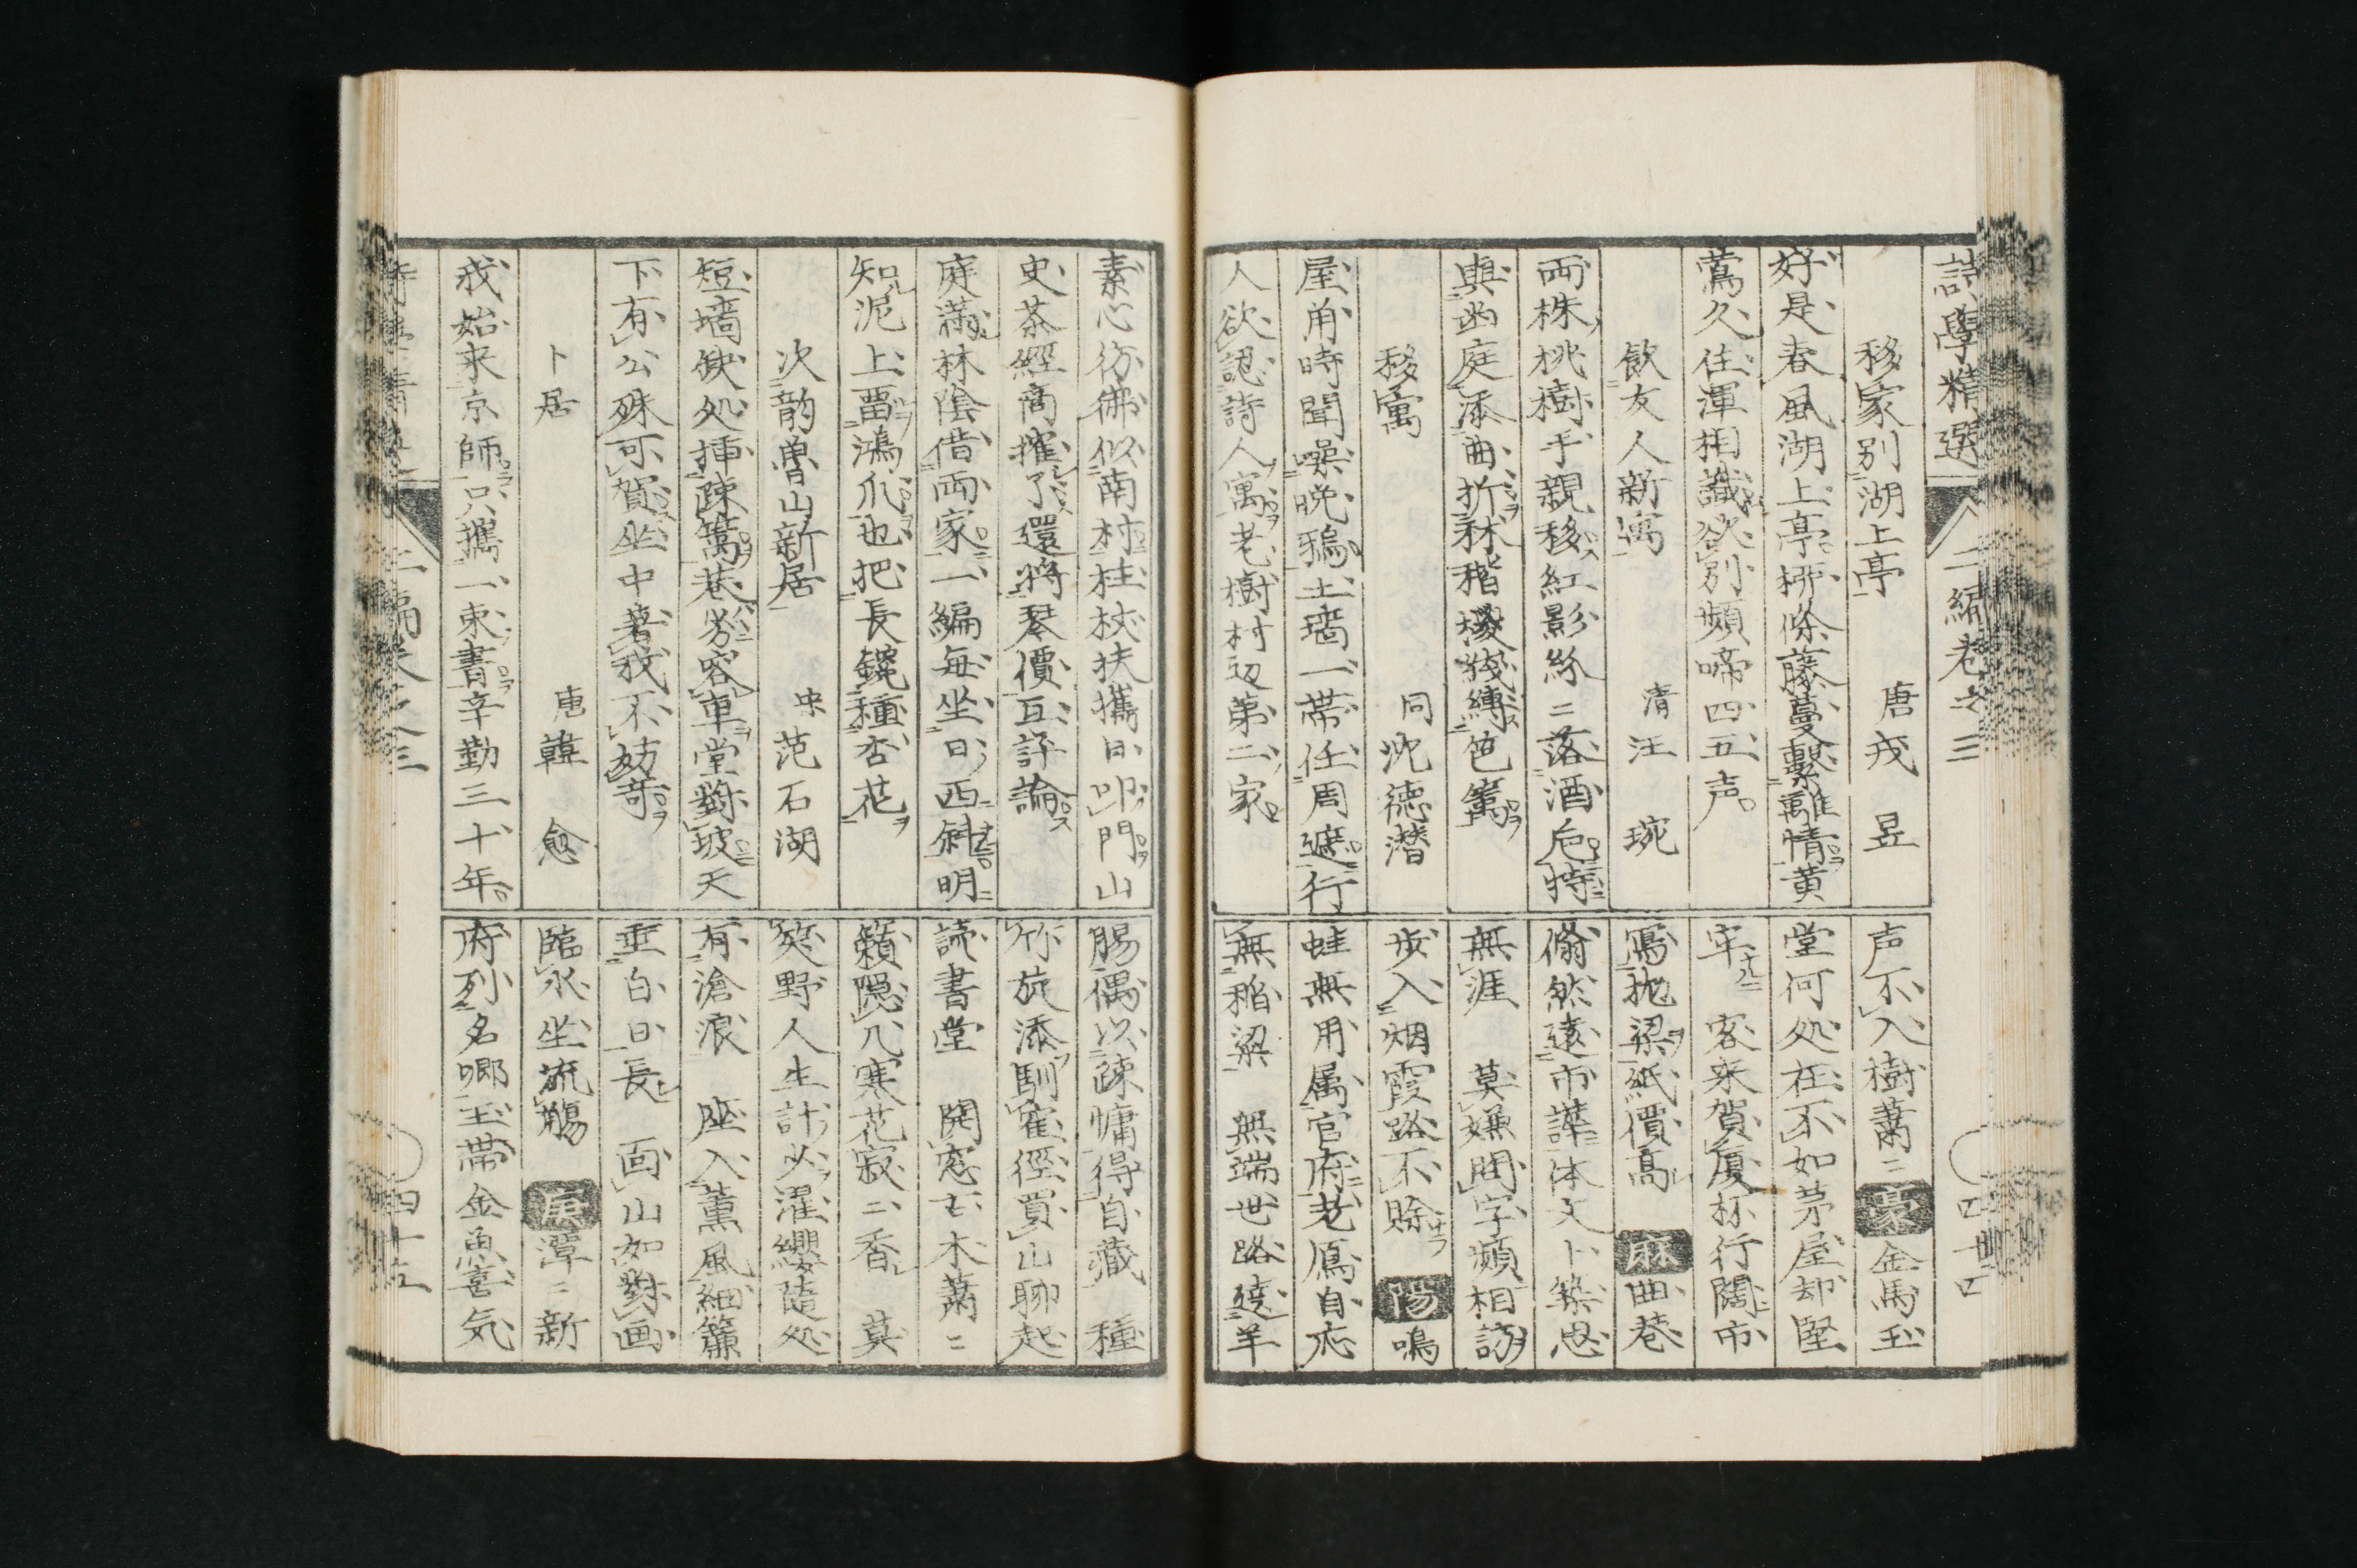 詩學精選 二編卷之三 四十四
移家別湖上亭 唐戎昱
好是春風湖上亭柳條藤蔓繫離情黄
鶯久住渾相識欲別頻啼四五声
飲友人新寓 清汪琬
両株桃樹手親移紅影紛〻落酒巵特
與凾庭添曲折秝稭綫縛笆籬
移寓 同沈徳潜
屋角時聞噪晩鴉土墻一帯任周遮行
人欲認詩人寓老樹村辺第二家
声不入樹蕭〻 豪 金馬玉
堂何処在不如茅屋却堅
牢 客来賀厦杯行闊市
寓抛梁紙價高 麻 曲巷
翛然遠市譁体文卜築思
無涯 莫嫌問字頻相訪
歩入烟霞路不賒 陽 鳴
蛙無用属官府老鳫自応
無稲粱 無端世路遶羊
素心彷彿似南村柱杖扶攜日叩門山
史茶經商搉了還將琴價互評論
庭満林陰借両家一編毎坐日西斜明
知泥上畱鴻爪也把長鑱種杏花
次韵魯山新居 宋范石湖
短墻缺処挿疎籬巷劣容車堂對坡天
下有公殊可賀坐中著我不妨奇
卜居 唐韓愈
我始来京師只攜一束書辛勤三十年
腸偶以疎慵得自藏 種
竹旋添馴寉徑買山聊起
読書堂 開窓古木蕭〻
籟隠几寒花寂〻香 莫
笑野人生計少濯纓随処
有滄浪 座入薫風細簾
垂白日長 面山如對画
臨水坐流觴 庚 潭〻新
府列名郷玉帯金魚喜気
二編 三 四十五